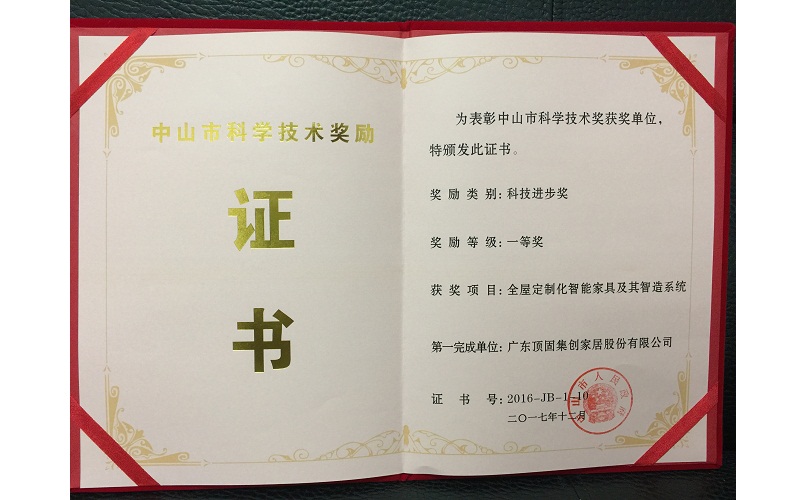 中山市科学技术奖励
证
书
为表彰中山市科学技术奖获奖单位，
特颁发此证书。
奖励类别：科技进步奖
奖励等级：一等奖
获奖项目：全屋定制化智能家具及其智造系统
第一完成单位：广东顶固集创家居股份有限公司
证书号：2016-JB-1-10
二〇一七年十二月
中山市人民政府